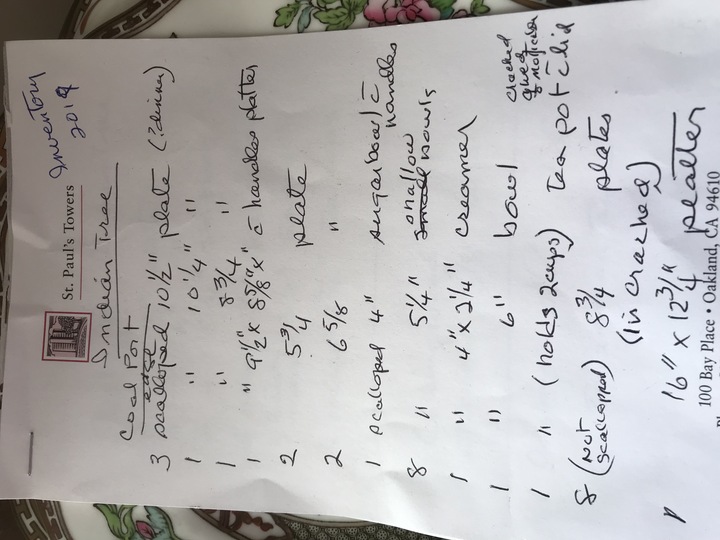 St. Paul's Towers
Inventory
2019
Indian Tree
Coal Port
edge
3 scalloped 10 1/2" plate (?dinner)
1 " 10 1/4" "
1 " 8 3/4" "
1 " 9 1/2" x 8 7/8" x " c handles platter
2 5 3/4 plate
2 6 5/8 "
1 scalloped 4" sugar bowl c handles
8 " 5 1/4" small shallow bowls
1 " 4" x 2 1/4" creamer
1 " 6" bowl
1 " (holds 2 cups) tea pot c lid cracked glued
8 (Not scalloped) 8 3/4 plates
(1 is cracked)
1 16" x 12 3/4" platter
100 Bay Place • Oakland, CA 94610